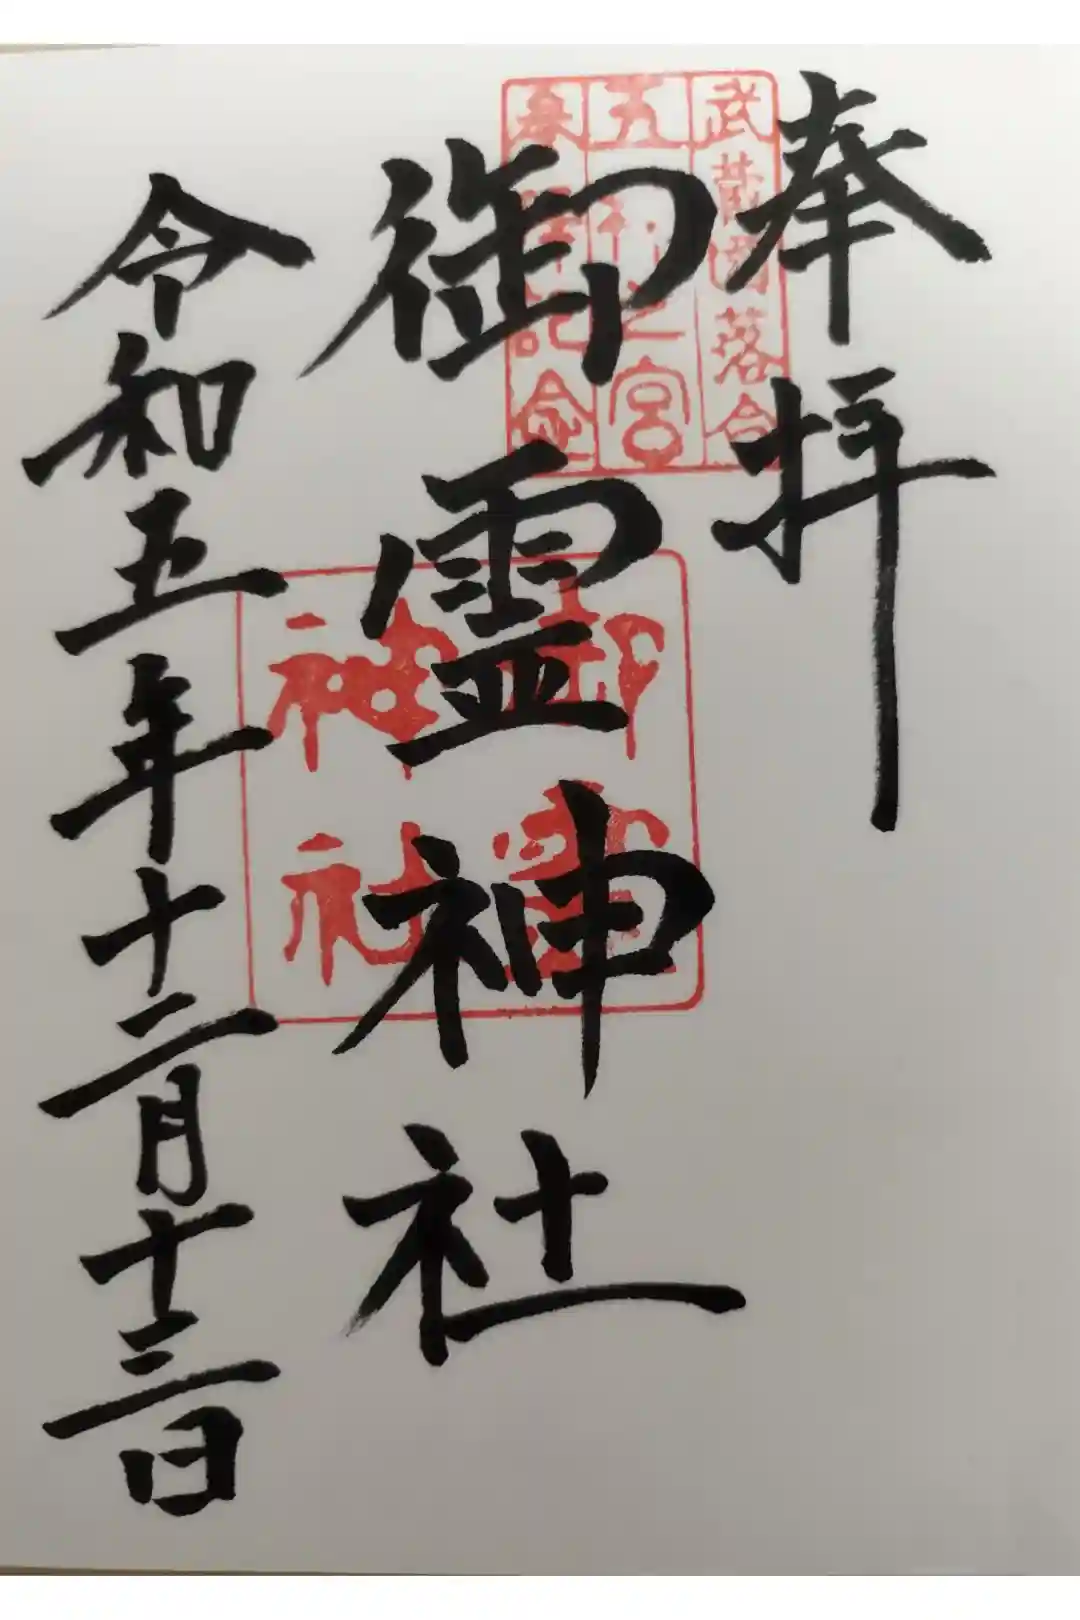 奉拝
武蔵國落合
五社之宮
参拝記念
御霊神社
御霊
神社
令和五年十二月十三日